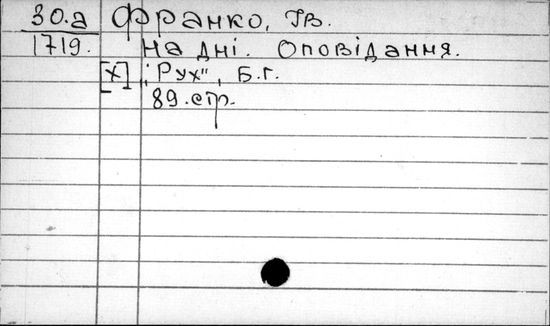 30.а Франко, Ів.
1719. На дні. Оповідання.
[х] „Рух", Б.г.
89.стр.